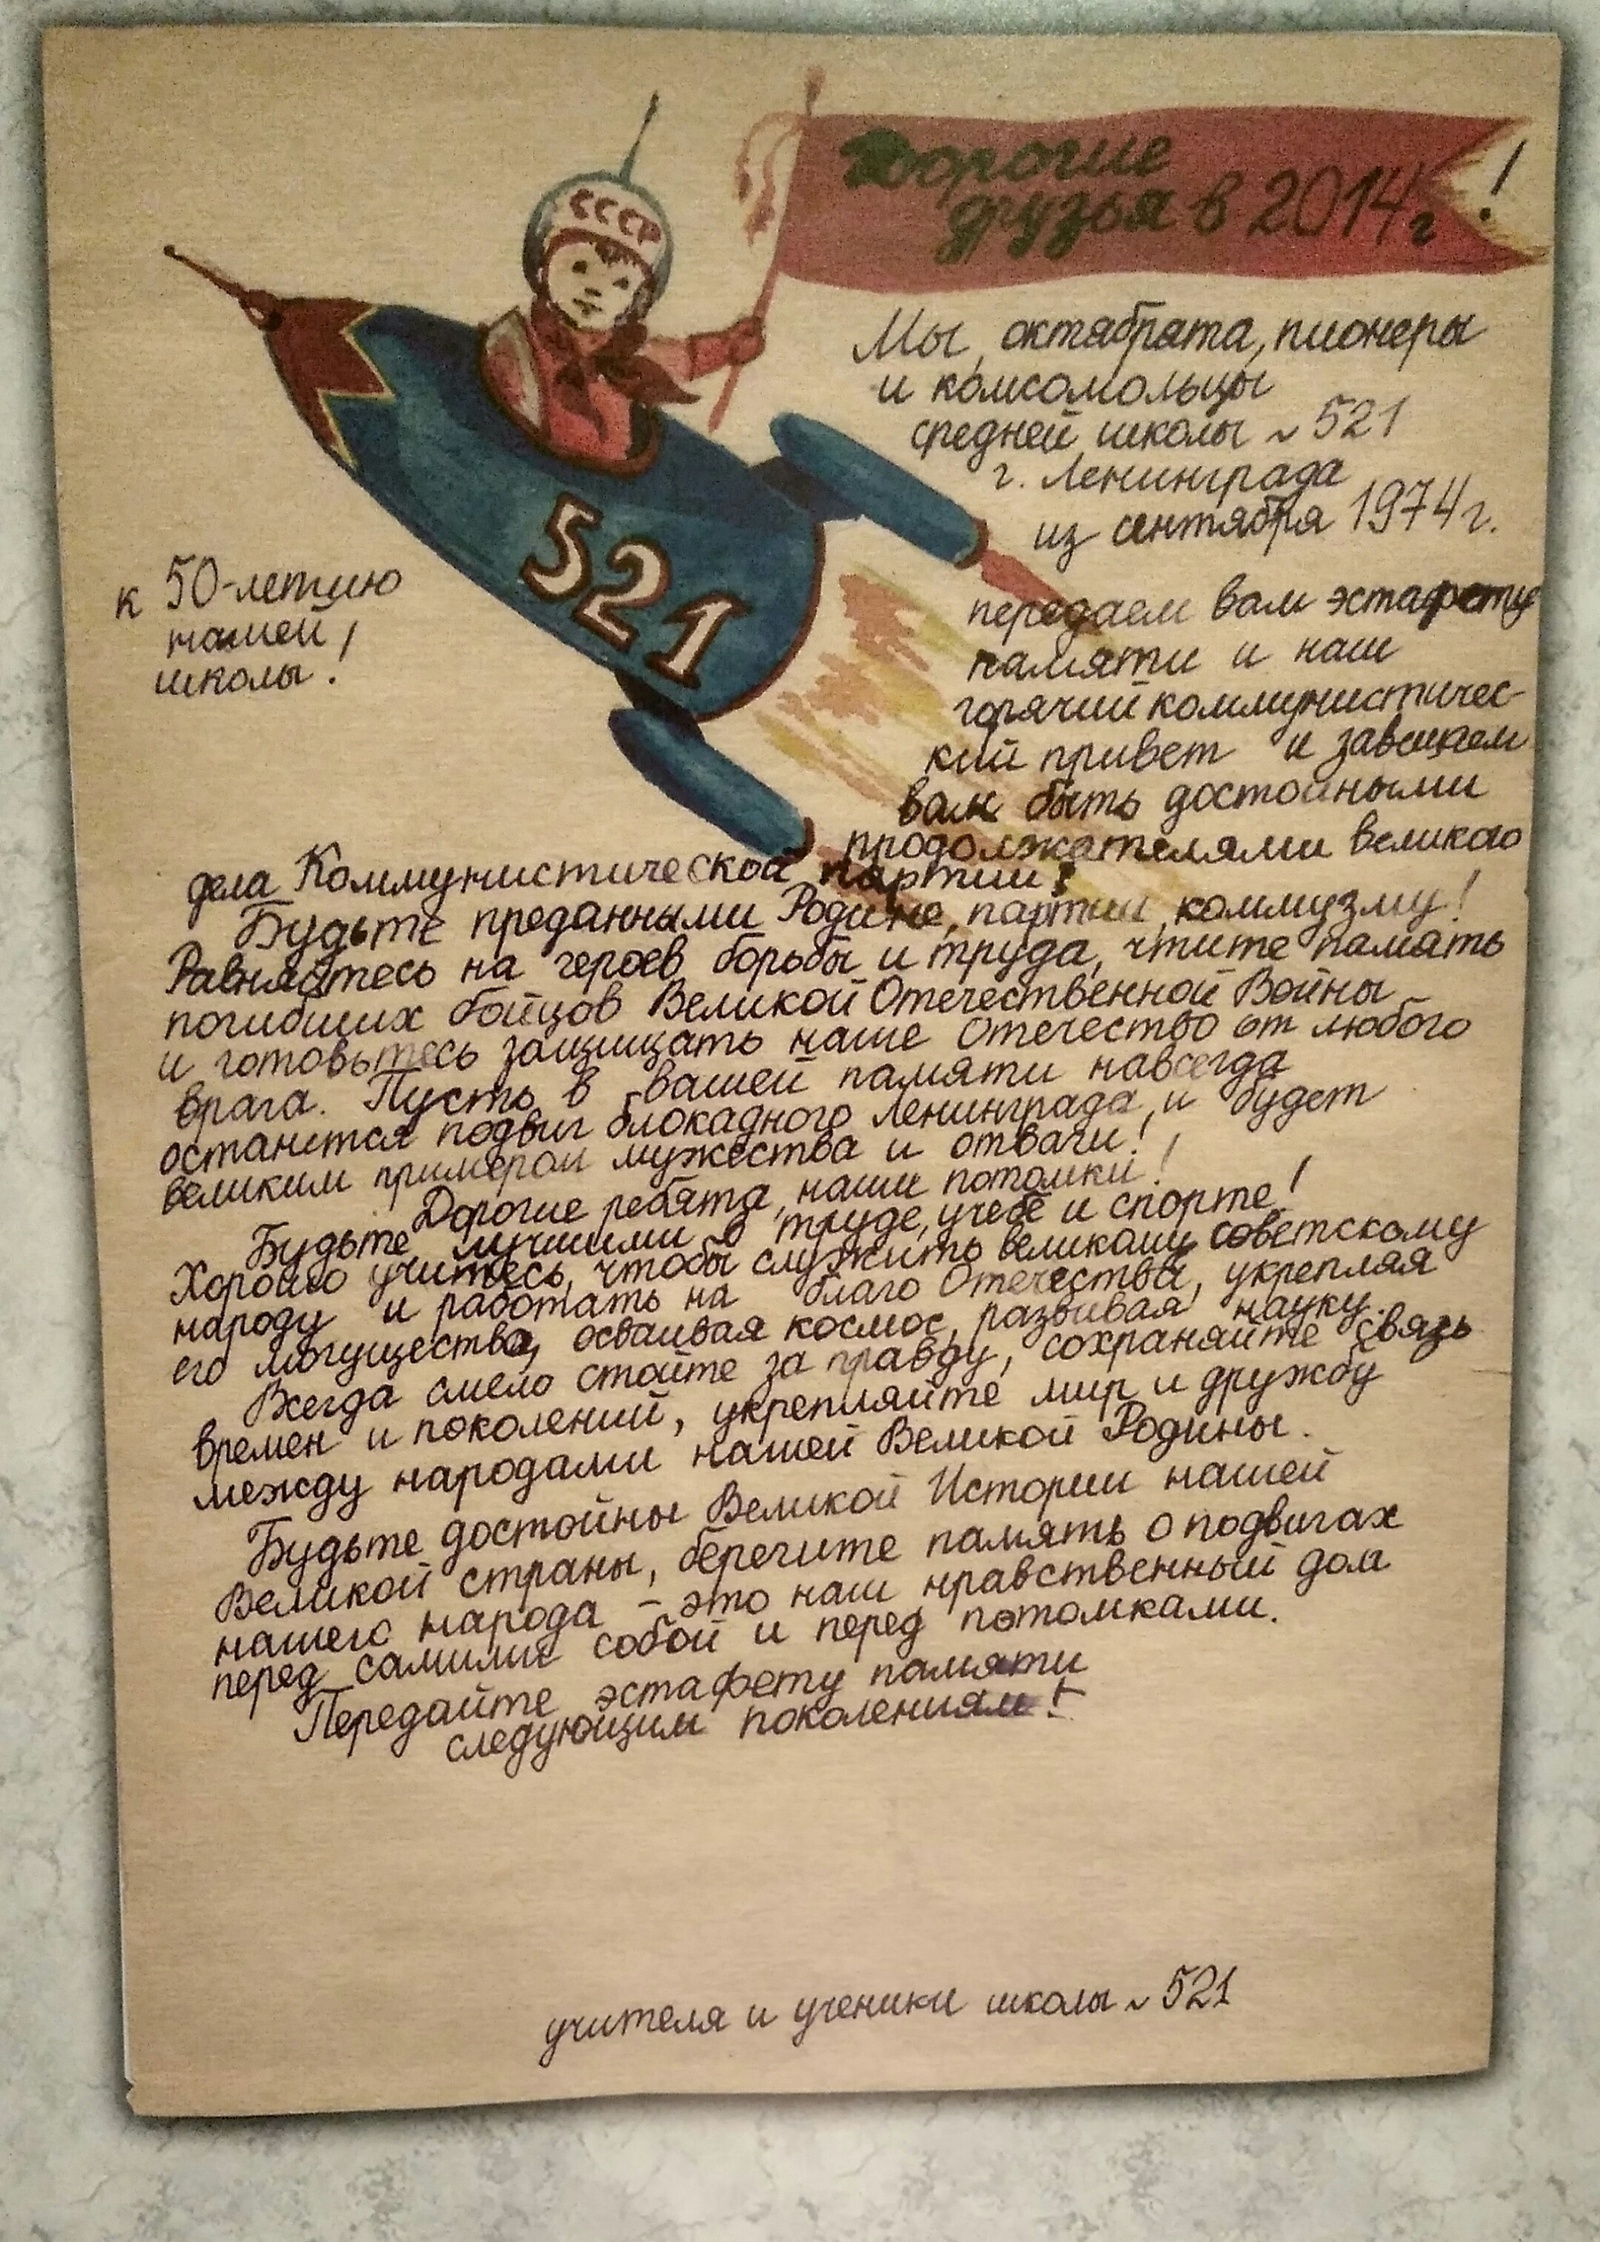 СССР
Дорогие
друзья в 2014 г!
521
Мы, октябрята, пионеры
и комсомольцы
средней школы № 521
г. Ленинграда
из сентября 1974 г.
к 50-летию
нашей
школы!
передаем вам эстафету
памяти и наш
горячий коммунистичес-
кий привет и завещаем
вам быть достойными
продолжателями великого
дела Коммунистической партии!
Будьте преданными Родине, партии, коммузму!
Равняйтесь на героев борьбы и труда, чтите память
погибших бойцов Великой Отечественной Войны
и готовьтесь защищать наше Отечество от любого
врага. Пусть в вашей памяти навсегда
останется подвиг блокадного Ленинграда и будет
великим примером мужества и отваги!
Дорогие ребята, наши потомки!
Будьте лучшими в труде, учебе и спорте!
Хорошо учитесь, чтобы служить великому советскому
народу и работать на благо Отечества, укрепляя
его могущество, осваивая космос, развивая науку.
Всегда смело стойте за правду, сохраняйте связь
времен и поколений, укрепляйте мир и дружбу
между народами нашей Великой Родины.
Будьте достойны Великой Истории нашей
Великой страны, берегите память о подвигах
нашего народа – это наш нравственный долг
перед самими собой и перед потомками.
Передайте эстафету памяти
следующим поколениям!
учителя и ученики школы № 521